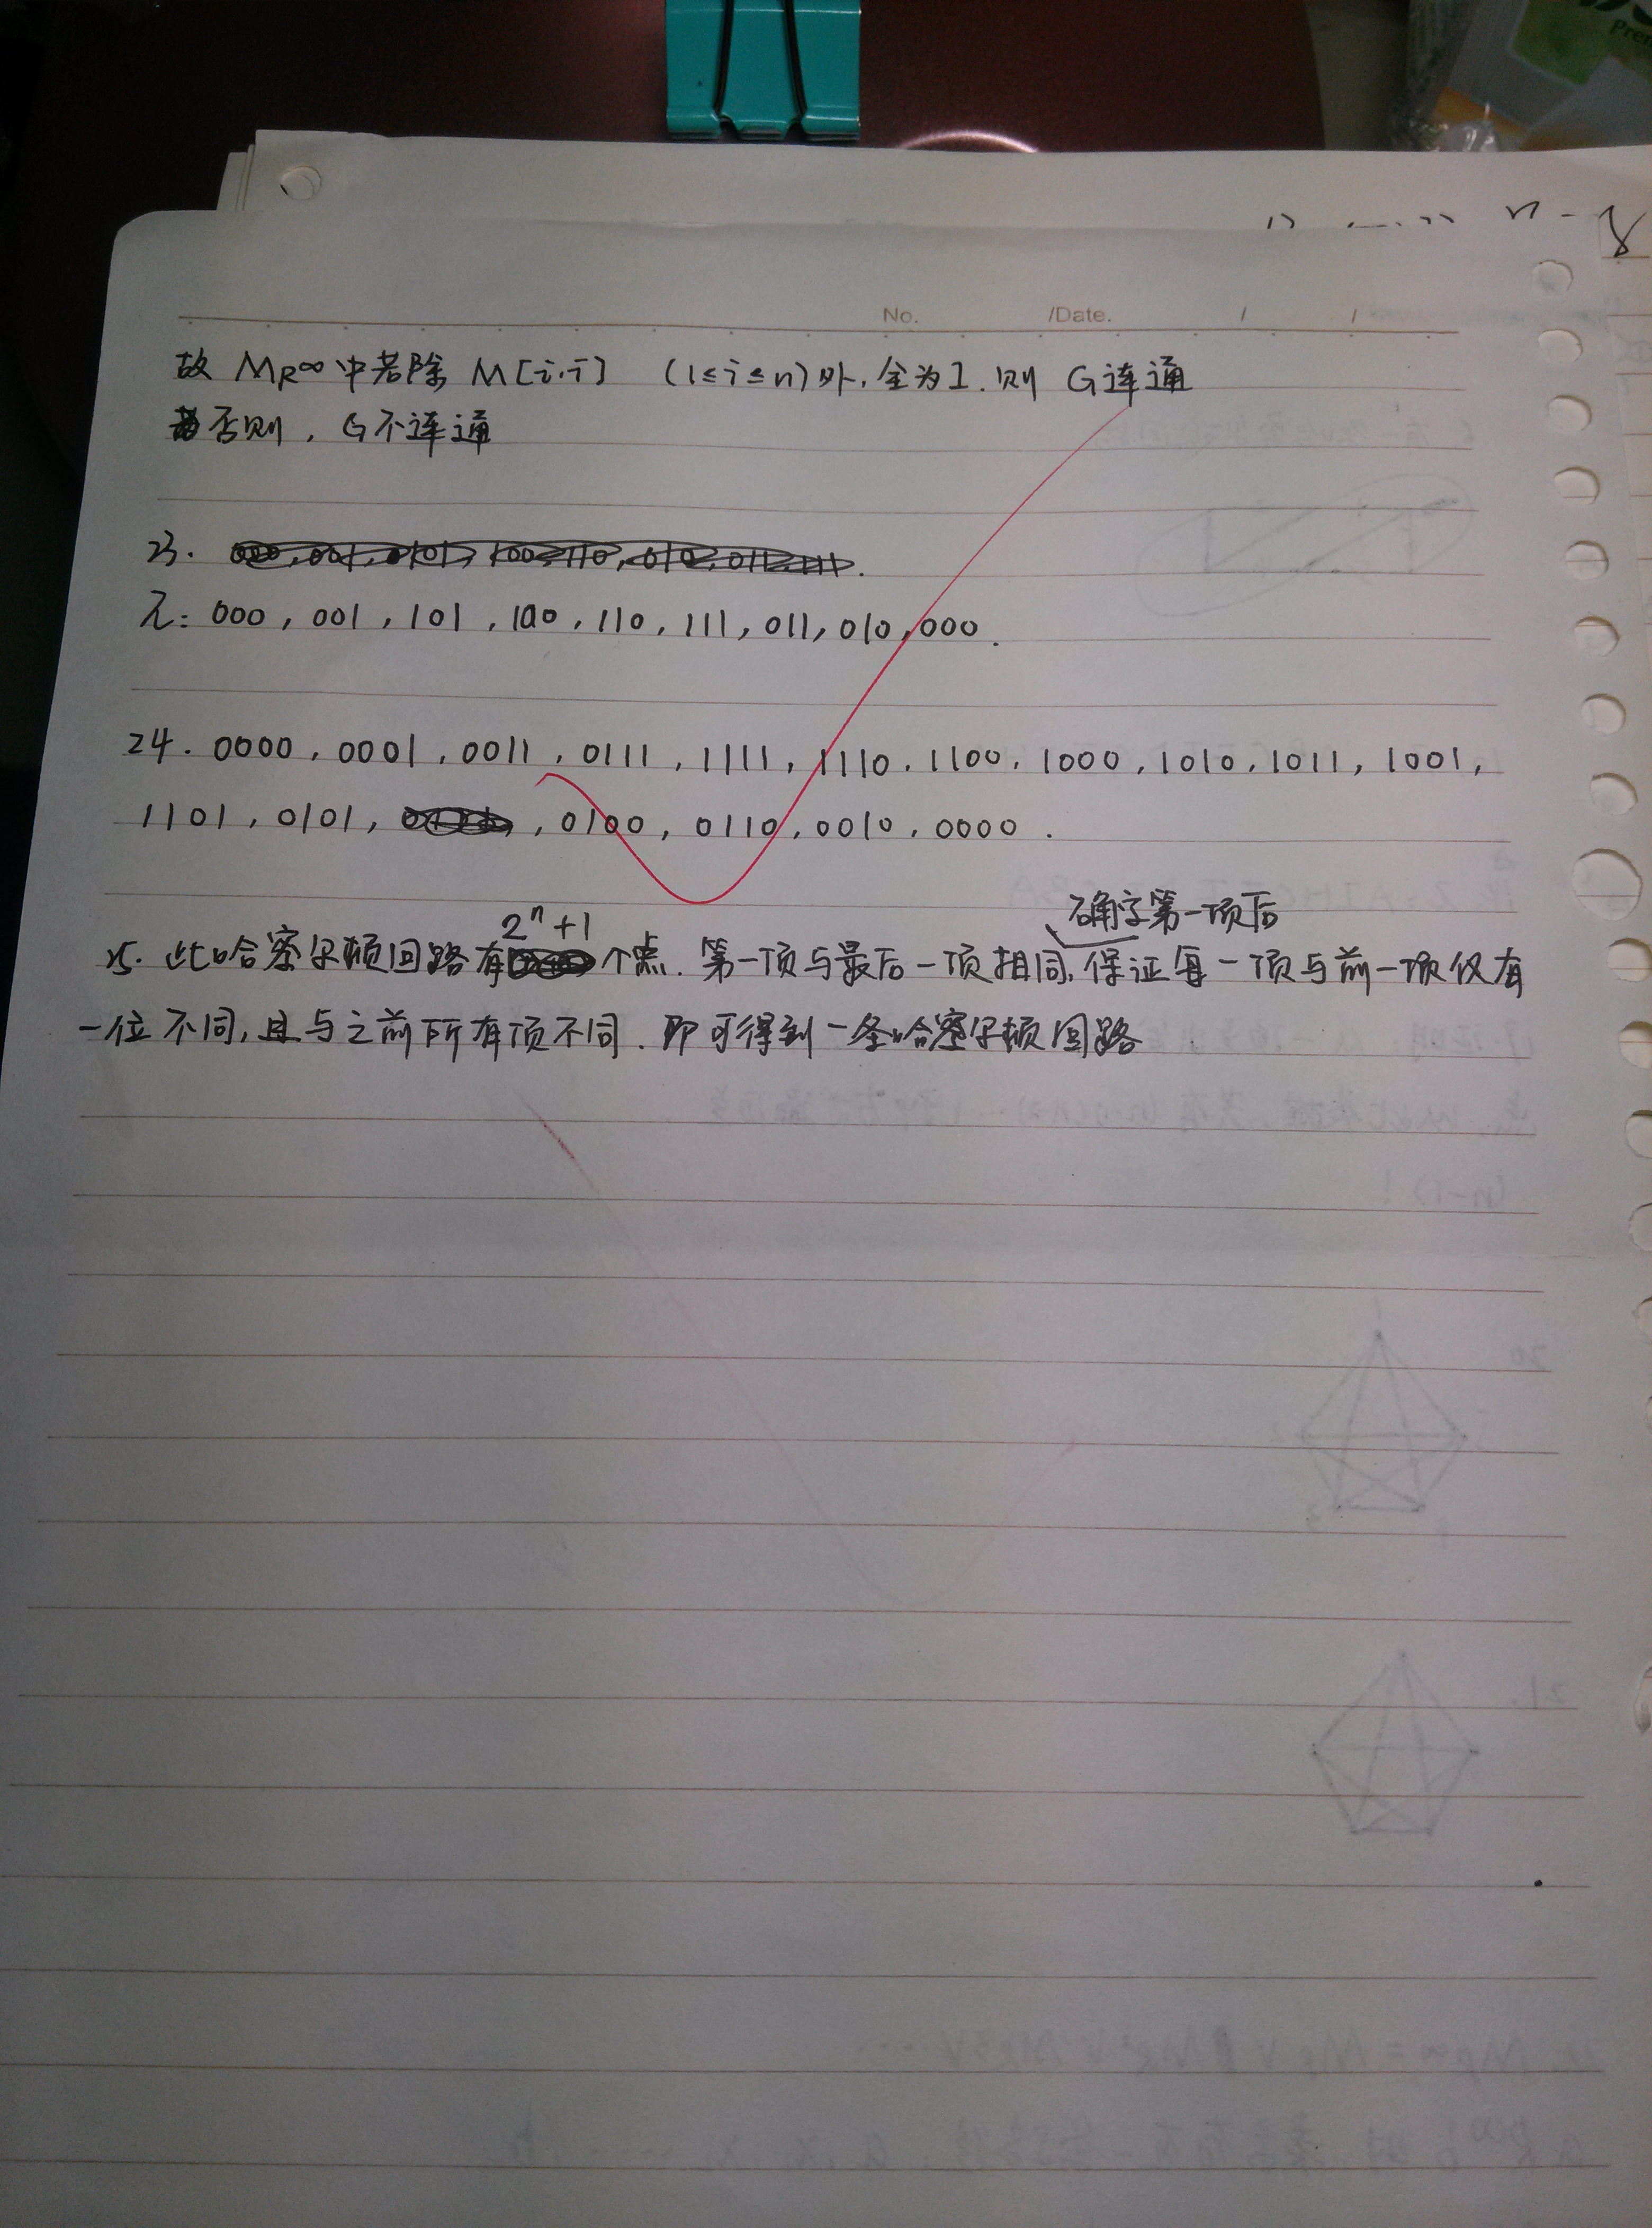 No. /Date. / /
故 MR∞中若除 M[i,i] (1≤i≤n)外,全为1.则 G连通
否则,G不连通
23.
π: 000, 001, 101, 100, 110, 111, 011, 010, 000.
24. 0000, 0001, 0011, 0111, 1111, 1110, 1100, 1000, 1010, 1011, 1001,
1101, 0101, , 0100, 0110, 0010, 0000.
2ⁿ+1 确定第一项后
25. 此哈密尔顿回路有个点. 第一项与最后一项相同,保证每一项与前一项仅有
一位不同,且与之前所有项不同. 即可得到一条哈密尔顿回路